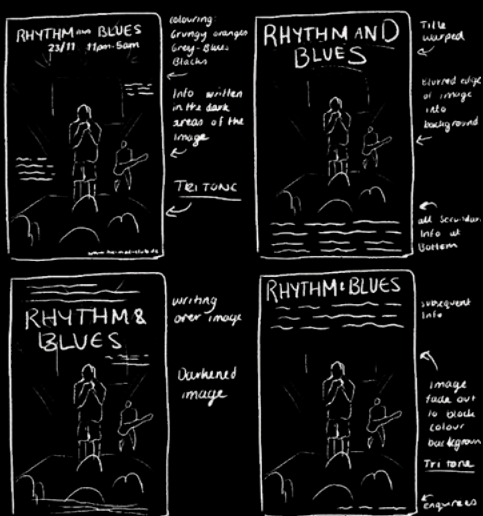 RHYTHM AND BLUES
23/11 11pm-5am
colouring:
Grungy oranges
Grey-Blues
Blacks
Info written
in the dark
areas of the
image
TRI TONE
RHYTHM AND
BLUES
Title
warped
Blurred edge
of image
into
background
all secondary
Info at
Bottom
RHYTHM &
BLUES
writing
over image
Darkened
image
RHYTHM & BLUES
subsequent
Info
image
fade out
to block
colour
background
Tri tone
enquirees